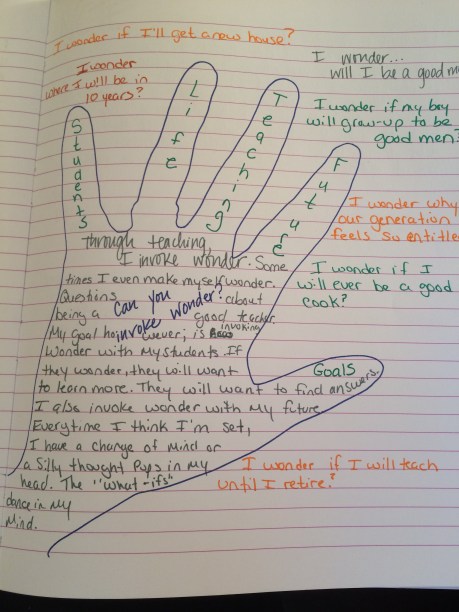 I wonder if I'll get a new house?
I wonder
where I will be in
10 years?
I wonder...
will I be a good
I wonder if my boy
will grow-up to be
good men?
I wonder why
our generation
feels so entitled
I wonder if I
will ever be a good
cook?
Students
Life
Teaching
Future
Goals
Through teaching,
I invoke wonder. Some
times I even make myself wonder.
Questions
can you
invoke wonder?
about
being a good teacher.
My goal however, is invoking
wonder with my students. If
they wonder, they will want
to learn more. They will want to find answers.
I also invoke wonder with my future
Everytime I think I'm set,
I have a change of mind or
a silly thought pops in my
head. The "what-ifs"
dance in my
mind.
I wonder if I will teach
until I retire?